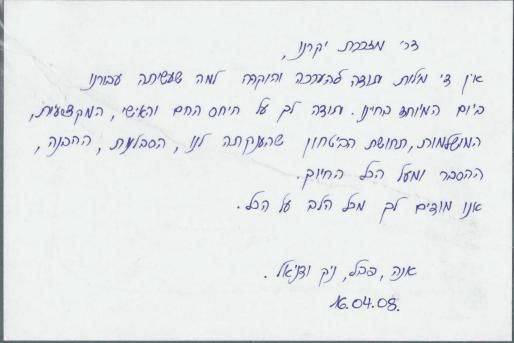 דר' יקרנו,
אין די מילות תודה להערכה והוקרה למה שעשיתה עבורנו
ביום המיוחד בחינו. תודה לך על היחס החם והאישי, המקצועיות,
המושלמות, תחושת הביטחון שהענקתה לנו, הסבלנות, ההבנה,
ההסבר ומעל הכל החיוך.
אנו מודים לך מכל הלב על הכל.
אנה, פבל, ניק ודניאל.
16.04.08.